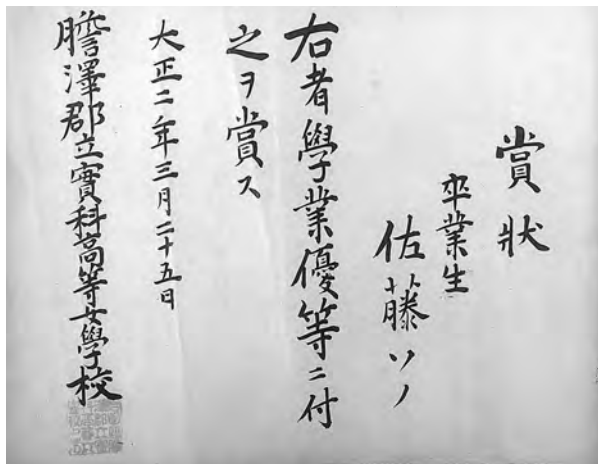 賞狀
卒業生
佐藤ソノ
右者學業優等ニ付
之ヲ賞ス
大正二年三月二十五日
膽澤郡立實科高等女學校